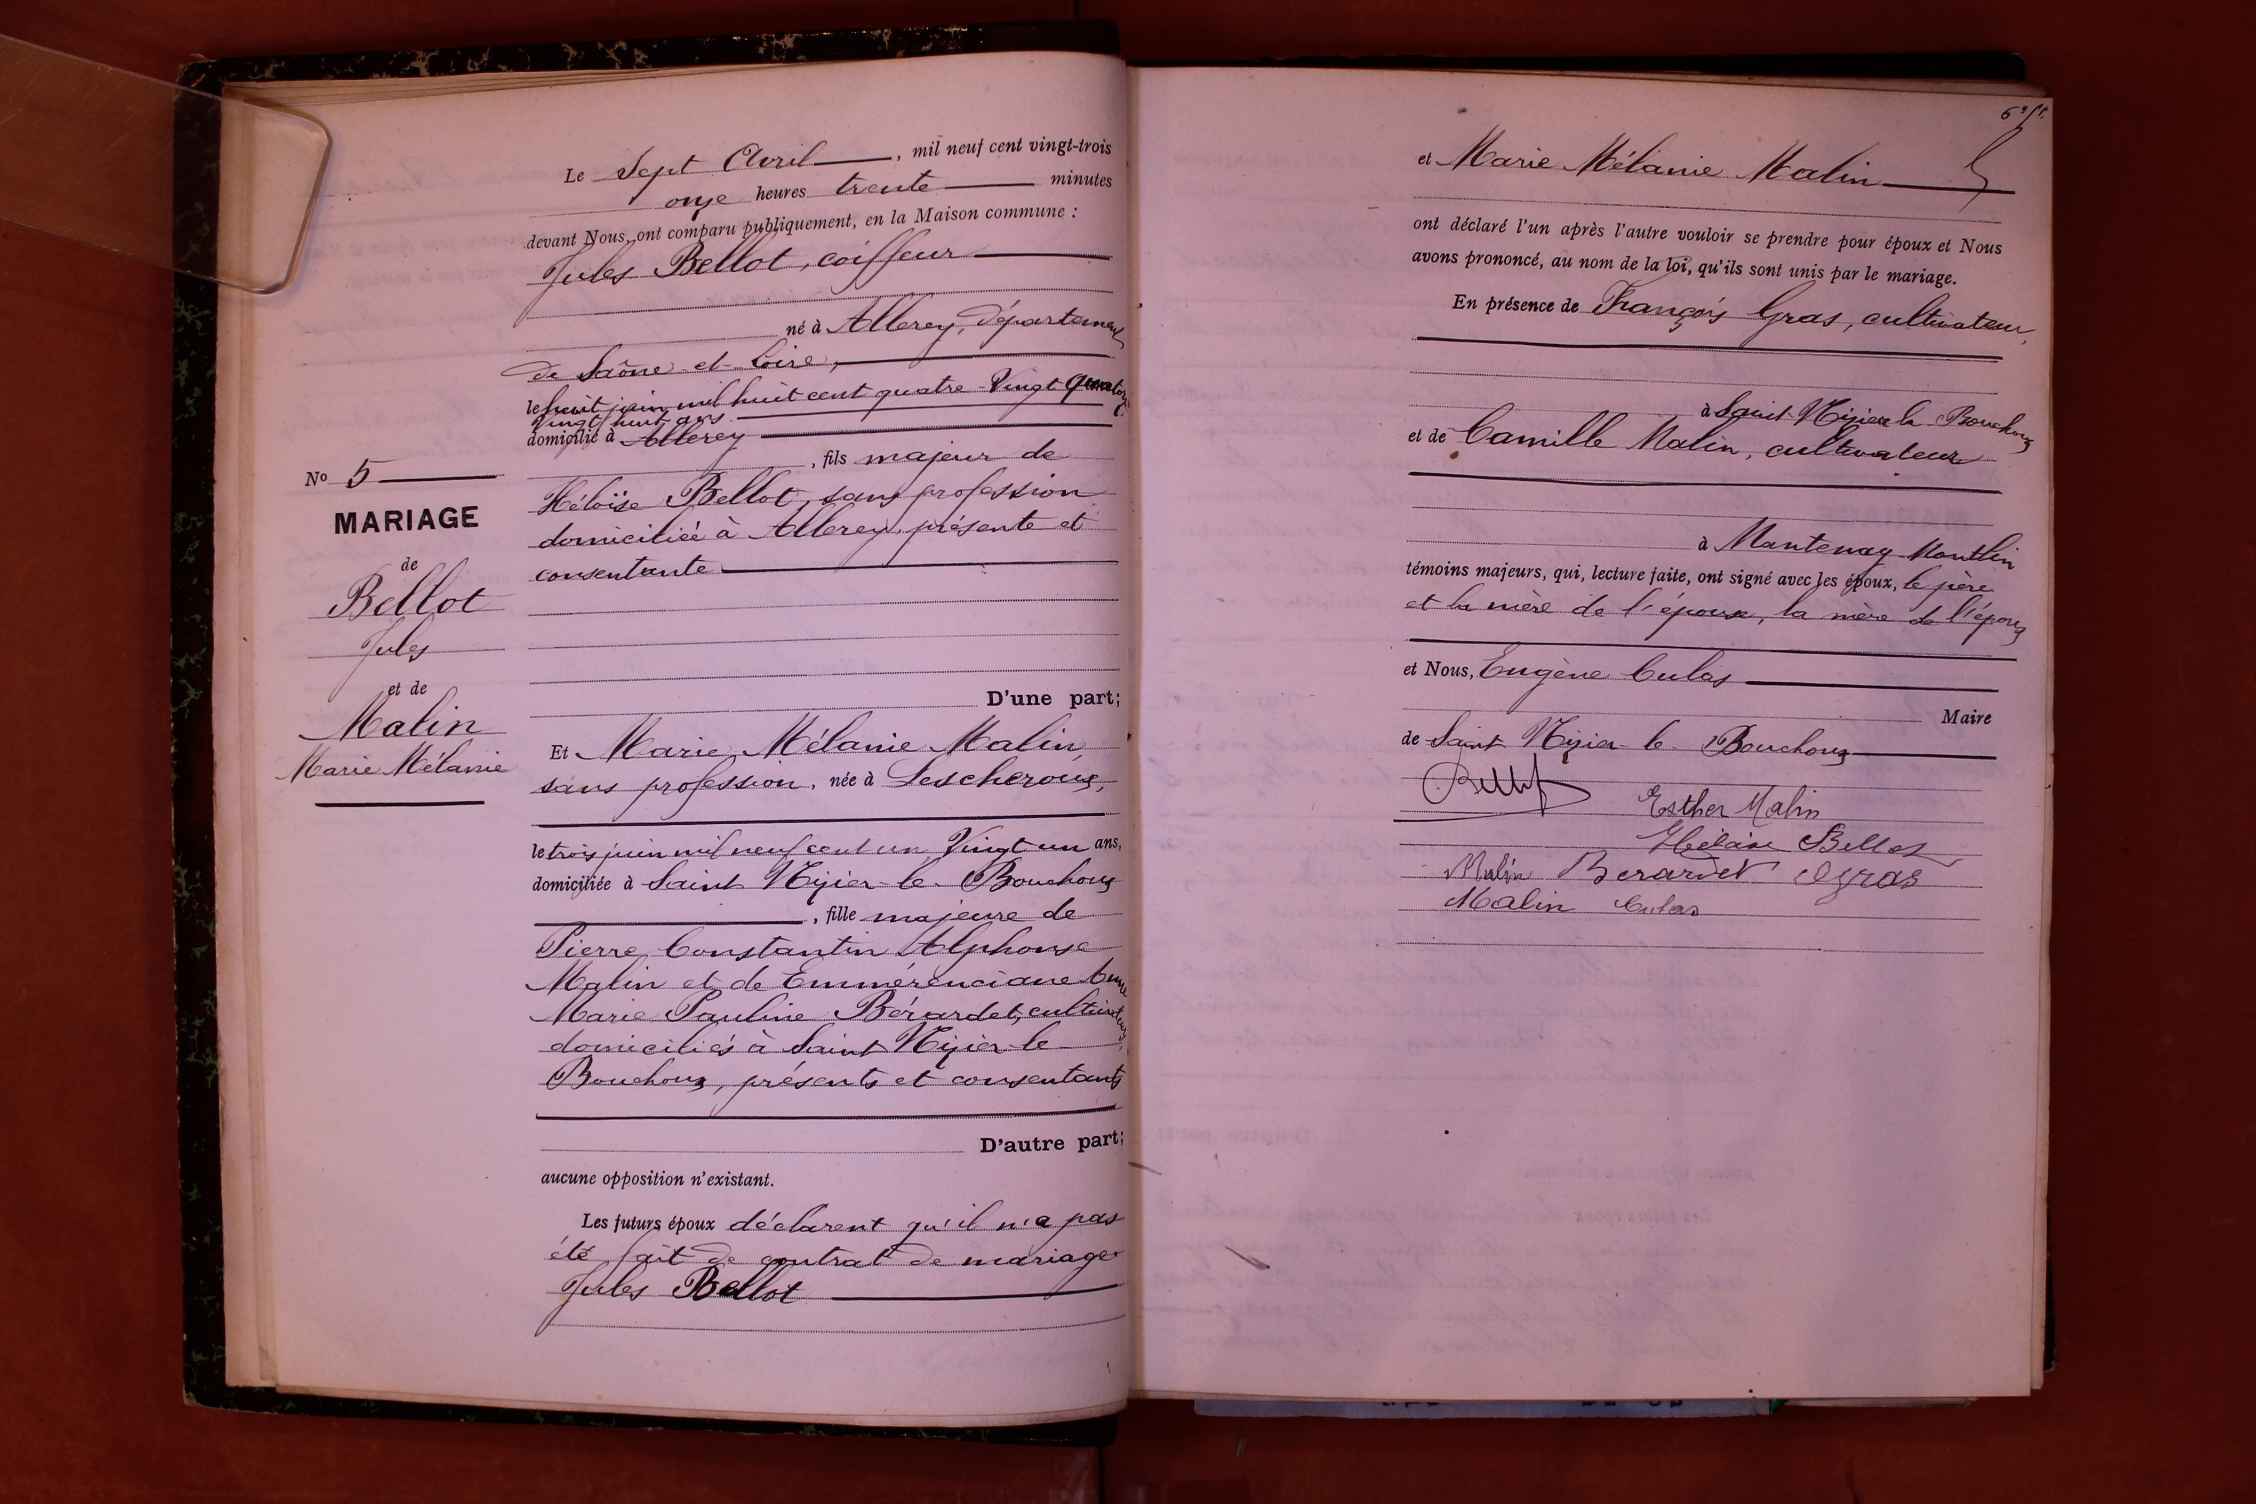 Le Sept Avril, mil neuf cent vingt-trois
onze heures trente minutes
devant Nous, ont comparu publiquement, en la Maison commune :
Jules Bellot, coiffeur
né à Allerey, département
de Saône-et-Loire,
le huit juin mil huit cent quatre-Vingt quatorze
Vingt huit ans
domicilié à Allerey
, fils majeur de
Héloïse Bellot, sans profession
domiciliée à Allerey, présente et
consentante
No 5
MARIAGE
de
Bellot
Jules
et de
Malin
Marie Mélanie
D'une part;
Et Marie Mélanie Malin
sans profession, née à Lescheroux,
le trois juin mil neuf cent un Vingt un ans,
domiciliée à Saint Nizier-le-Bouchoux
, fille majeure de
Pierre Constantin Alphonse
Malin et de Emmérenciane Anne
Marie Pauline Bérardet, cultivateurs,
domiciliés à Saint Nizier-le
Bouchoux, présents et consentants
D'autre part;
aucune opposition n'existant.
Les futurs époux déclarent qu'il n'a pas
été fait de contrat de mariage
Jules Bellot
et Marie Mélanie Malin
ont déclaré l'un après l'autre vouloir se prendre pour époux et Nous
avons prononcé, au nom de la loi, qu'ils sont unis par le mariage.
En présence de François Gras, cultivateur,
à Saint Nizier le Bouchoux
et de Camille Malin, cultivateur
à Mantenay Montlin
témoins majeurs, qui, lecture faite, ont signé avec les époux, le père
et la mère de l'épouse, la mère de l'époux
et Nous, Eugène Culas
Maire
de Saint Nizier-le-Bouchoux
Bellot
Esther Malin
Héloïse Bellot
Malin Berardet Gras
Malin Culas